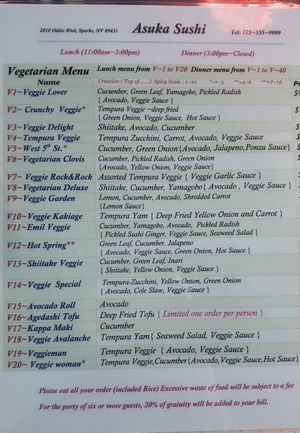 2810 Oddie Blvd, Sparks, NV 89431 Asuka Sushi Tel: 775~355~9999
Lunch (11:00am~3:00pm) Dinner (3:00pm~Closed)
Vegetarian Menu Lunch menu from V~1 to V20 Dinner menu from V~1 to V~40
Name Creation (Top of......) Spicy Scale : 1~10 *=1~3 **=4~6 **=7~10
V1~Veggie Lover Cucumber, Green Leaf, Yamagobo, Pickled Radish
{ Avocado, Veggie Sauce }
V2~ Crunchy Veggie* Tempura Veggie ~deep fried
{ Green Onion, Veggie Sauce, Hot Sauce }
V3~Veggie Delight Shiitake, Avocado, Cucumber
V4~Tempura Veggie Tempura Zucchini, Carrot, Avocado, Veggie Sauce
V5~West 5th St.* Cucumber, Green Onion{Avocado, Jalapeno,Ponzu Sauce}
V6~Vegetarian Clovis Cucumber, Pickled Radish, Green Onion
{Avocado, Yellow Onion, Veggie Sauce}
V7~ Veggie Rock&Rock Assorted Tempura Veggie { Veggie Garlic Sauce }
V8~Vegetarian Deluxe Shiitake, Cucumber, Yamagobo{ Avocado , Veggie Sauce }
V9~Veggie Garden Lemon, Cucumber, Avocado, Shredded Carrot
{Lemon Sauce}
V10~Veggie Kakiage Tempura Yam { Deep Fried Yellow Onion and Carrot }
V11~Emil Veggie Cucumber, Yamagobo, Avocado, Pickled Radish
{ Pickled Sushi Ginger, Veggie Sauce, Seaweed Salad }
V12~Hot Spring** Green Leaf, Cucumber, Jalapeno
{ Avocado, Veggie Sauce, Green Onion, Hot Sauce }
V13~Shiitake Veggie Cucumber, Green Leaf, Inari
{ Shiitake, Yellow Onion, Veggie Sauce }
V14~Veggie Special Tempura-Zucchini, Yellow Onion, Green Onion
{ Avocado, Cole Slaw, Veggie Sauce }
V15~Avocado Roll Avocado
V16~Agedashi Tofu Deep Fried Tofu { Limited one order per person }
V17~Kappa Maki Cucumber
V18~Veggie Avalanche Tempura Yam{ Seaweed Salad, Veggie Sauce }
V19~Veggieman Tempura Veggie { Avocado, Veggie Sauce }
V20~ Veggie woman* Tempura Veggie,Cucumber{Avocado,Veggie Sauce,Hot Sauce}
Please eat all your order (included Rice) Excessive waste of food will be subject to a fee
For the party of six or more guests, 20% of gratuity will be added to your bill.